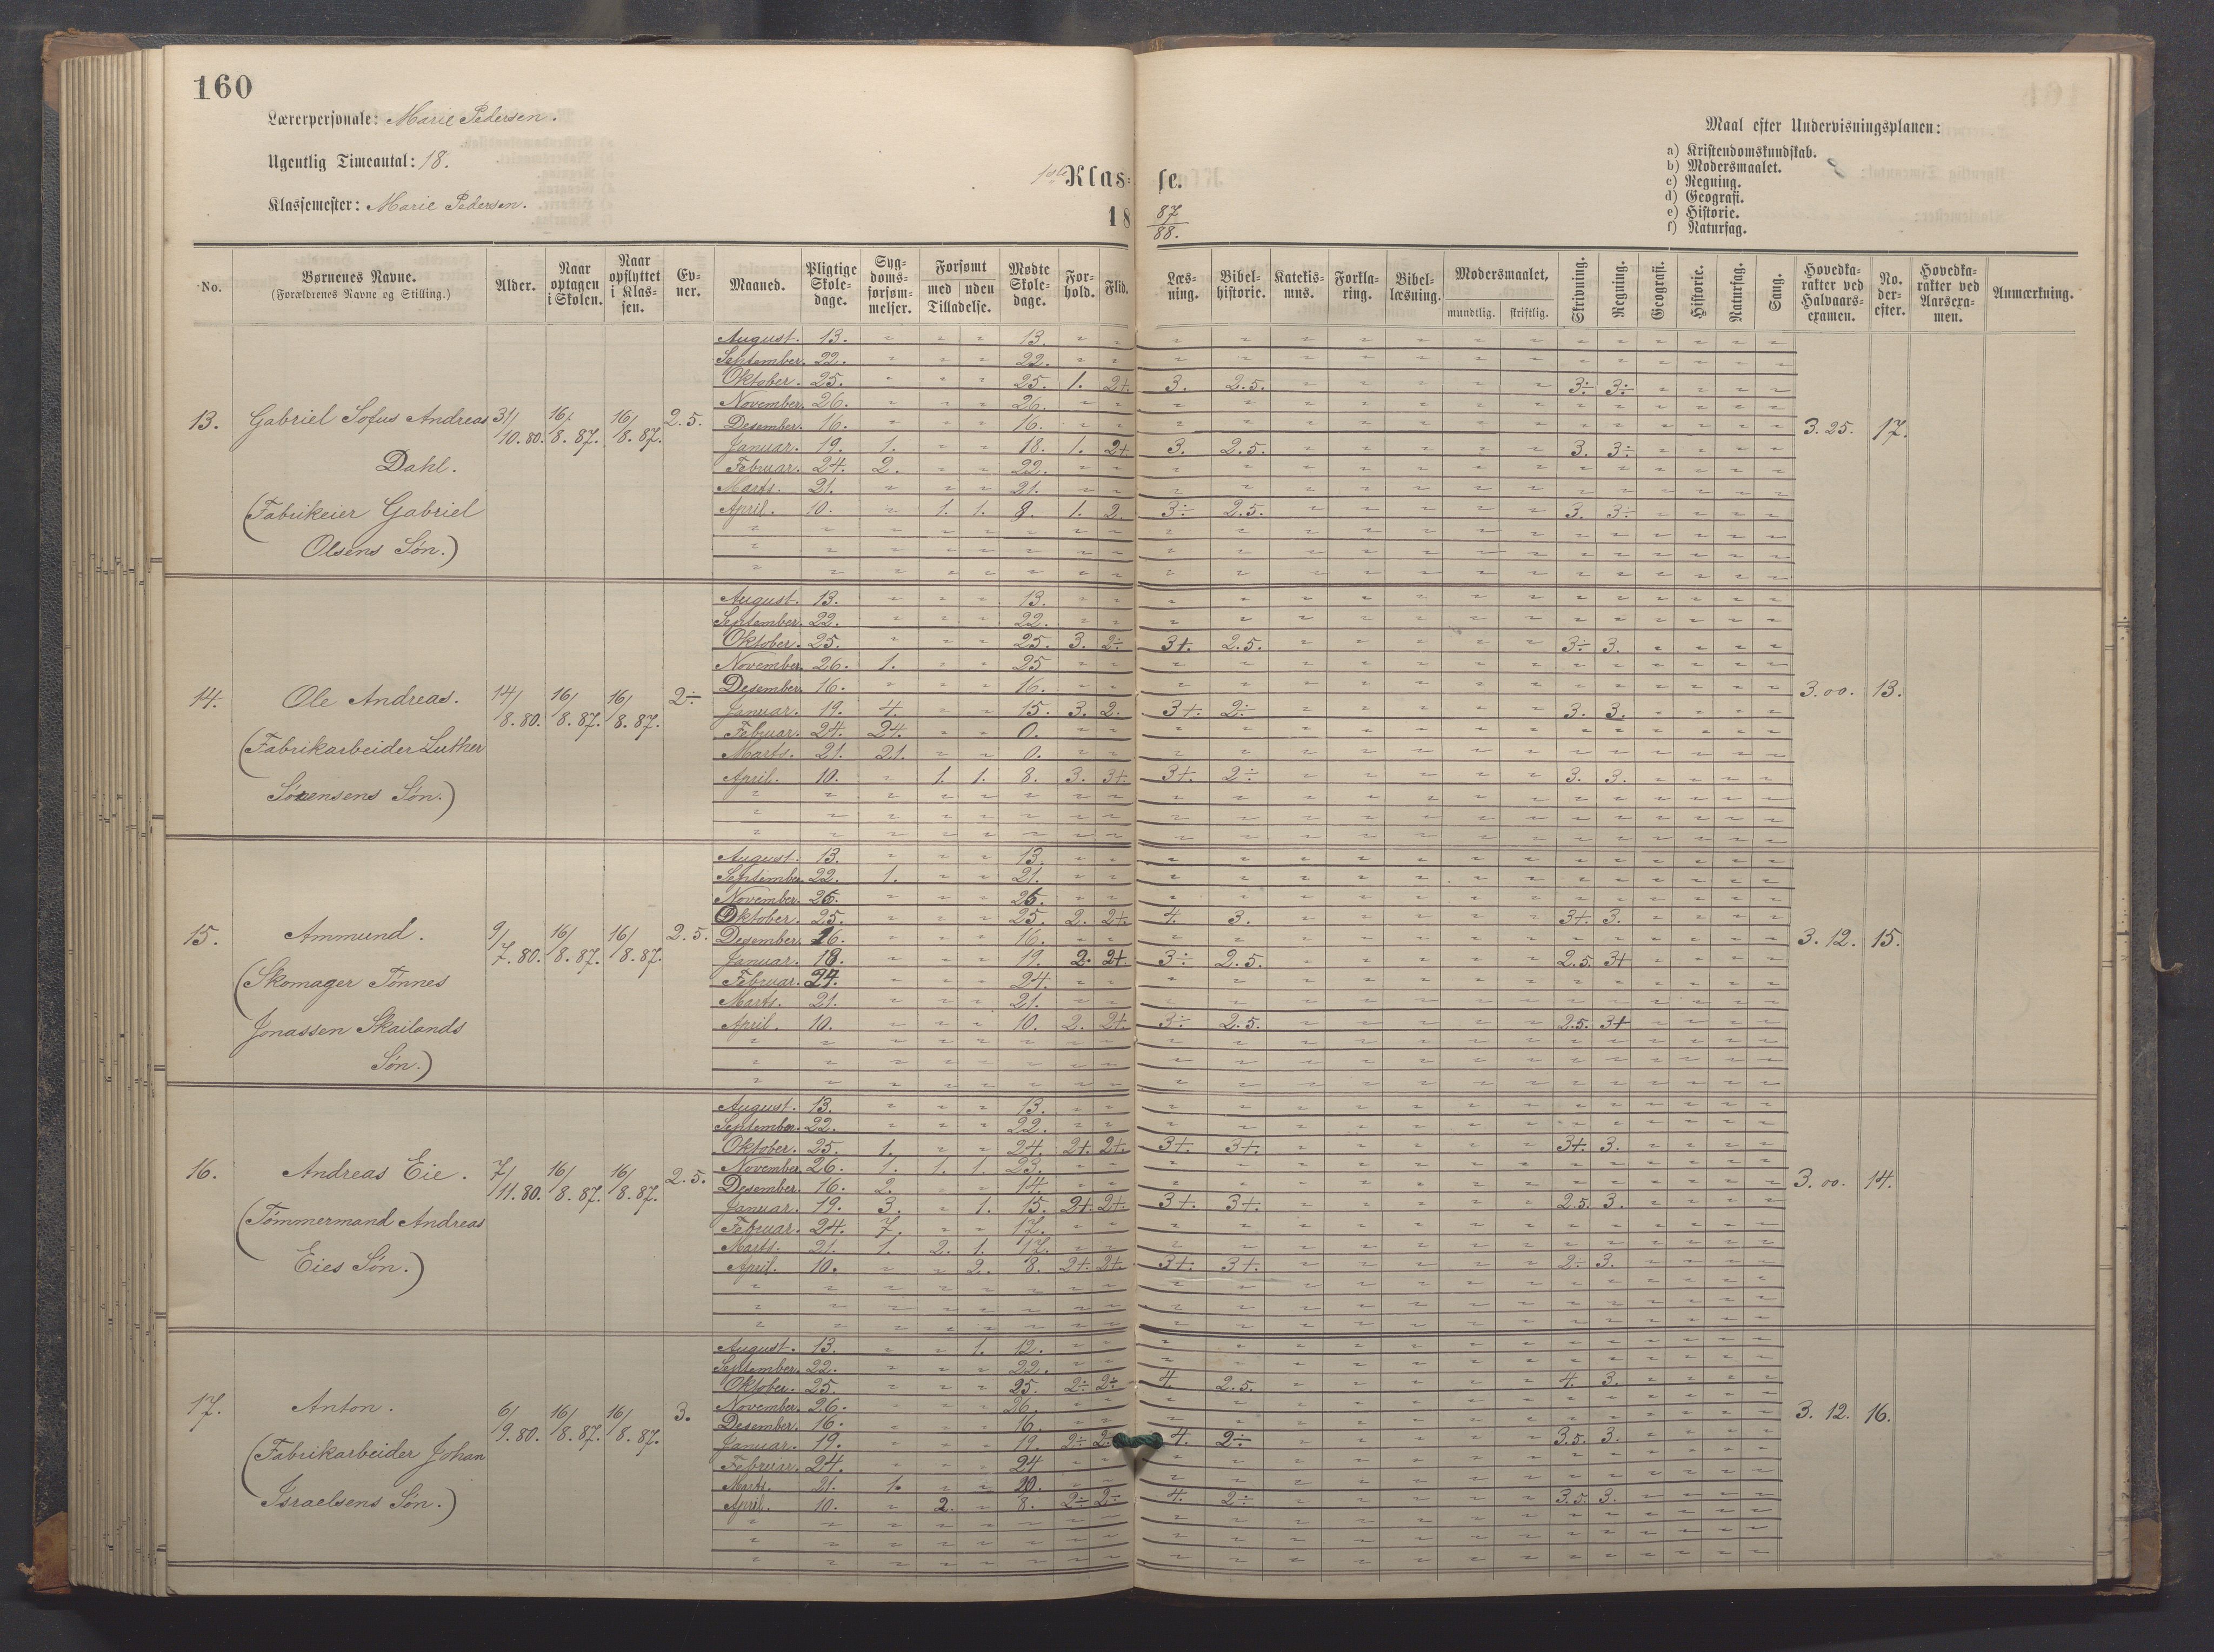 160
Lærerpersonale: Marie Pedersen.
Ugentlig Timeantal: 18.
Klassemester: Marie Pedersen.
1ste Klasse.
18 87/88.
Maal efter Undervisningsplanen:
a) Kristendomskundskab.
b) Modersmaalet.
c) Regning.
d) Geografi.
e) Historie.
f) Naturfag.
No. Børnenes Navne. (Forældrenes Navne og Stilling.) Alder. Naar optagen i Skolen. Naar opflyttet i Klassen. Evner. Maaned. Pligtige Skoledage. Sygdomsforsømmelser. Forsømt med uden Tilladelse. Mødte Skoledage. Forhold. Flid. Læsning. Bibelhistorie. Katekismus. Forklaring. Bibellæsning. Modersmaalet, mundtlig. skriftlig. Skrivning. Regning. Geografi. Historie. Naturfag. Sang. Hovedkarakter ved Halvaarsexamen. No. derefter. Hovedkarakter ved Aarsexamen. Anmærkning.
13. Gabriel Sofus Andreas Dahl. (Fabrikeier Gabriel Olsens Søn.) 31/10.80. 16/8.87. 16/8.87. 2.5. 3.25. 17.
August. 13. " " " 13. " "
September. 22. " " " 22. " "
Oktober. 25. " " " 25. 1. 2+. 3. 2.5. " " " " " 3÷ 3÷ " " " "
November. 26. " " " 26. " "
Desember. 16. " " " 16. " "
Januar. 19. 1. " " 18. 1. 2+ 3. 2.5. " " " " " 3. 3÷ " " " "
Februar. 24. 2. " " 22. " "
Marts. 21. " " " 21. " "
April. 10. " 1. 1. 8. 1. 2. 3÷ 2.5. " " " " " 3. 3÷ " " " "
14. Ole Andreas. (Fabrikarbeider Luther Sørensens Søn.) 14/8.80. 16/8.87. 16/8.87. 2÷ 3.00. 13.
August. 13. " " " 13. " "
September. 22. " " " 22. " "
Oktober. 25. " " " 25. 3. 2÷ 3+. 2.5. " " " " " 3÷ 3. " " " "
November. 26. 1. " " 25 " "
Desember. 16. " " " 16. " "
Januar. 19. 4. " " 15. 3. 2. 3+. 2÷ " " " " " 3. 3. " " " "
Februar. 24. 24. " " 0. " "
Marts. 21. 21. " " 0. " "
April. 10. " 1. 1. 8. 3. 3+. 3+. 2÷ " " " " " 3. 3. " " " "
15. Ammund. (Skomager Tønnes Jonassen Skailands Søn.) 9/7.80. 16/8.87. 16/8.87. 2.5. 3.12. 15.
August. 13. " " " 13. " "
September. 22. 1. " " 21. " "
November. 26. " " " 26. " "
Oktober. 25. " " " 25. 2. 2+. 4. 3. " " " " " 3+. 3. " " " "
Desember. 16. " " " 16. " "
Januar. " " " 19. 2. 2+ 3÷ 2.5. " " " " " 2.5. 3+ " " " "
Februar. 24. " " " 24. " "
Marts. 21. " " " 21. " "
April. 10. " " " 10. 2. 2+. 3÷ 2.5. " " " " " 2.5. 3+ " " " "
16. Andreas Eie. (Tømmermand Andreas Eies Søn.) 7/11.80. 16/8.87. 16/8.87. 2.5. 3.00. 14.
August. 13. " " " 13. " "
September. 22. " " " 22. " "
Oktober. 25. 1. " " 24. 2+. 2+. 3+. 3+. " " " " " 3+. 3. " " " "
November. 26. 1. 1. 1. 23. " "
Desember. 16. 2. " " 14. " "
Januar. 19. 3. " 1. 15. 2+. 2+. 3+. 3+. " " " " " 2.5. 3. " " " "
Februar. 24. 7. " " 17. " "
Marts. 21. 1. 2. 1. 17. " "
April. 10. " " 2. 8. 2+. 2+. 3+. 3+. " " " " " 2÷ 3. " " " "
17. Anton. (Fabrikarbeider Johan Israelsens Søn.) 6/9.80. 16/8.87. 16/8.87. 3. 3.12. 16.
August. 13. " " 1. 12. " "
September. 22. " " " 22. " "
Oktober. 25. " " " 25. 2÷ 2÷ 4. 2.5. " " " " " 4. 3. " " " "
November. 26. " " " 26. " "
Desember. 16. " " " 16. " "
Januar. 19. " " " 19. 2÷ 4. 2÷ " " " " " 3.5. 3. " " " "
Februar. 24. " " " 24 " "
Marts. 21. 1. " " 20. " "
April. 10. " 2. " 8. 2÷ 2÷ 4. 2÷ " " " " " 3.5. 3. " " " "